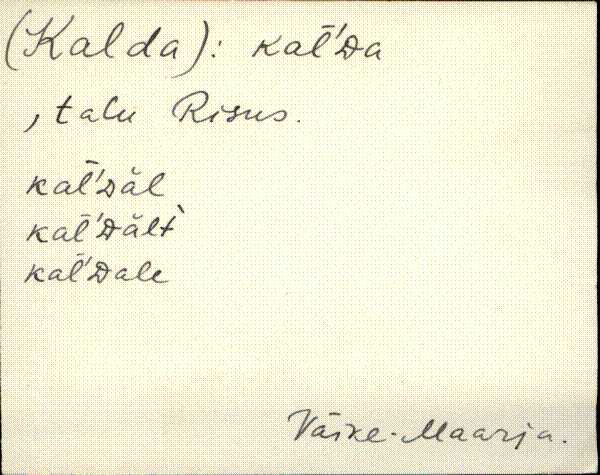 (Kalda): kal̄'ᴅa
, talu Risus.
kal̄'ᴅăl
kal̄'ᴅălt̀
kal̄'ᴅale
Väike-Maarja.